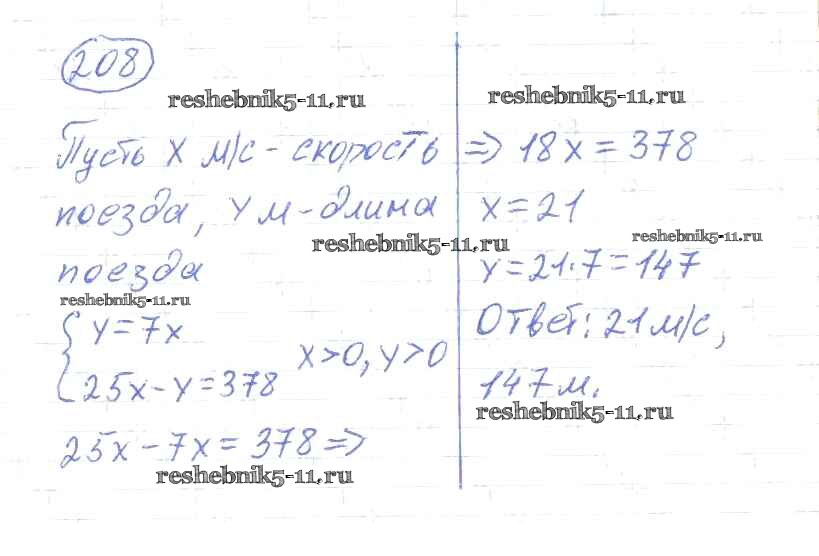 208
reshebnik5-11.ru
Пусть X м/с - скорость
поезда, Y м - длина
reshebnik5-11.ru
поезда
reshebnik5-11.ru
{ y = 7x
25x - y = 378
x > 0, y > 0
25x - 7x = 378 =>
reshebnik5-11.ru
reshebnik5-11.ru
=> 18x = 378
x = 21
reshebnik5-11.ru
y = 21·7 = 147
Ответ: 21 м/с,
147 м.
reshebnik5-11.ru